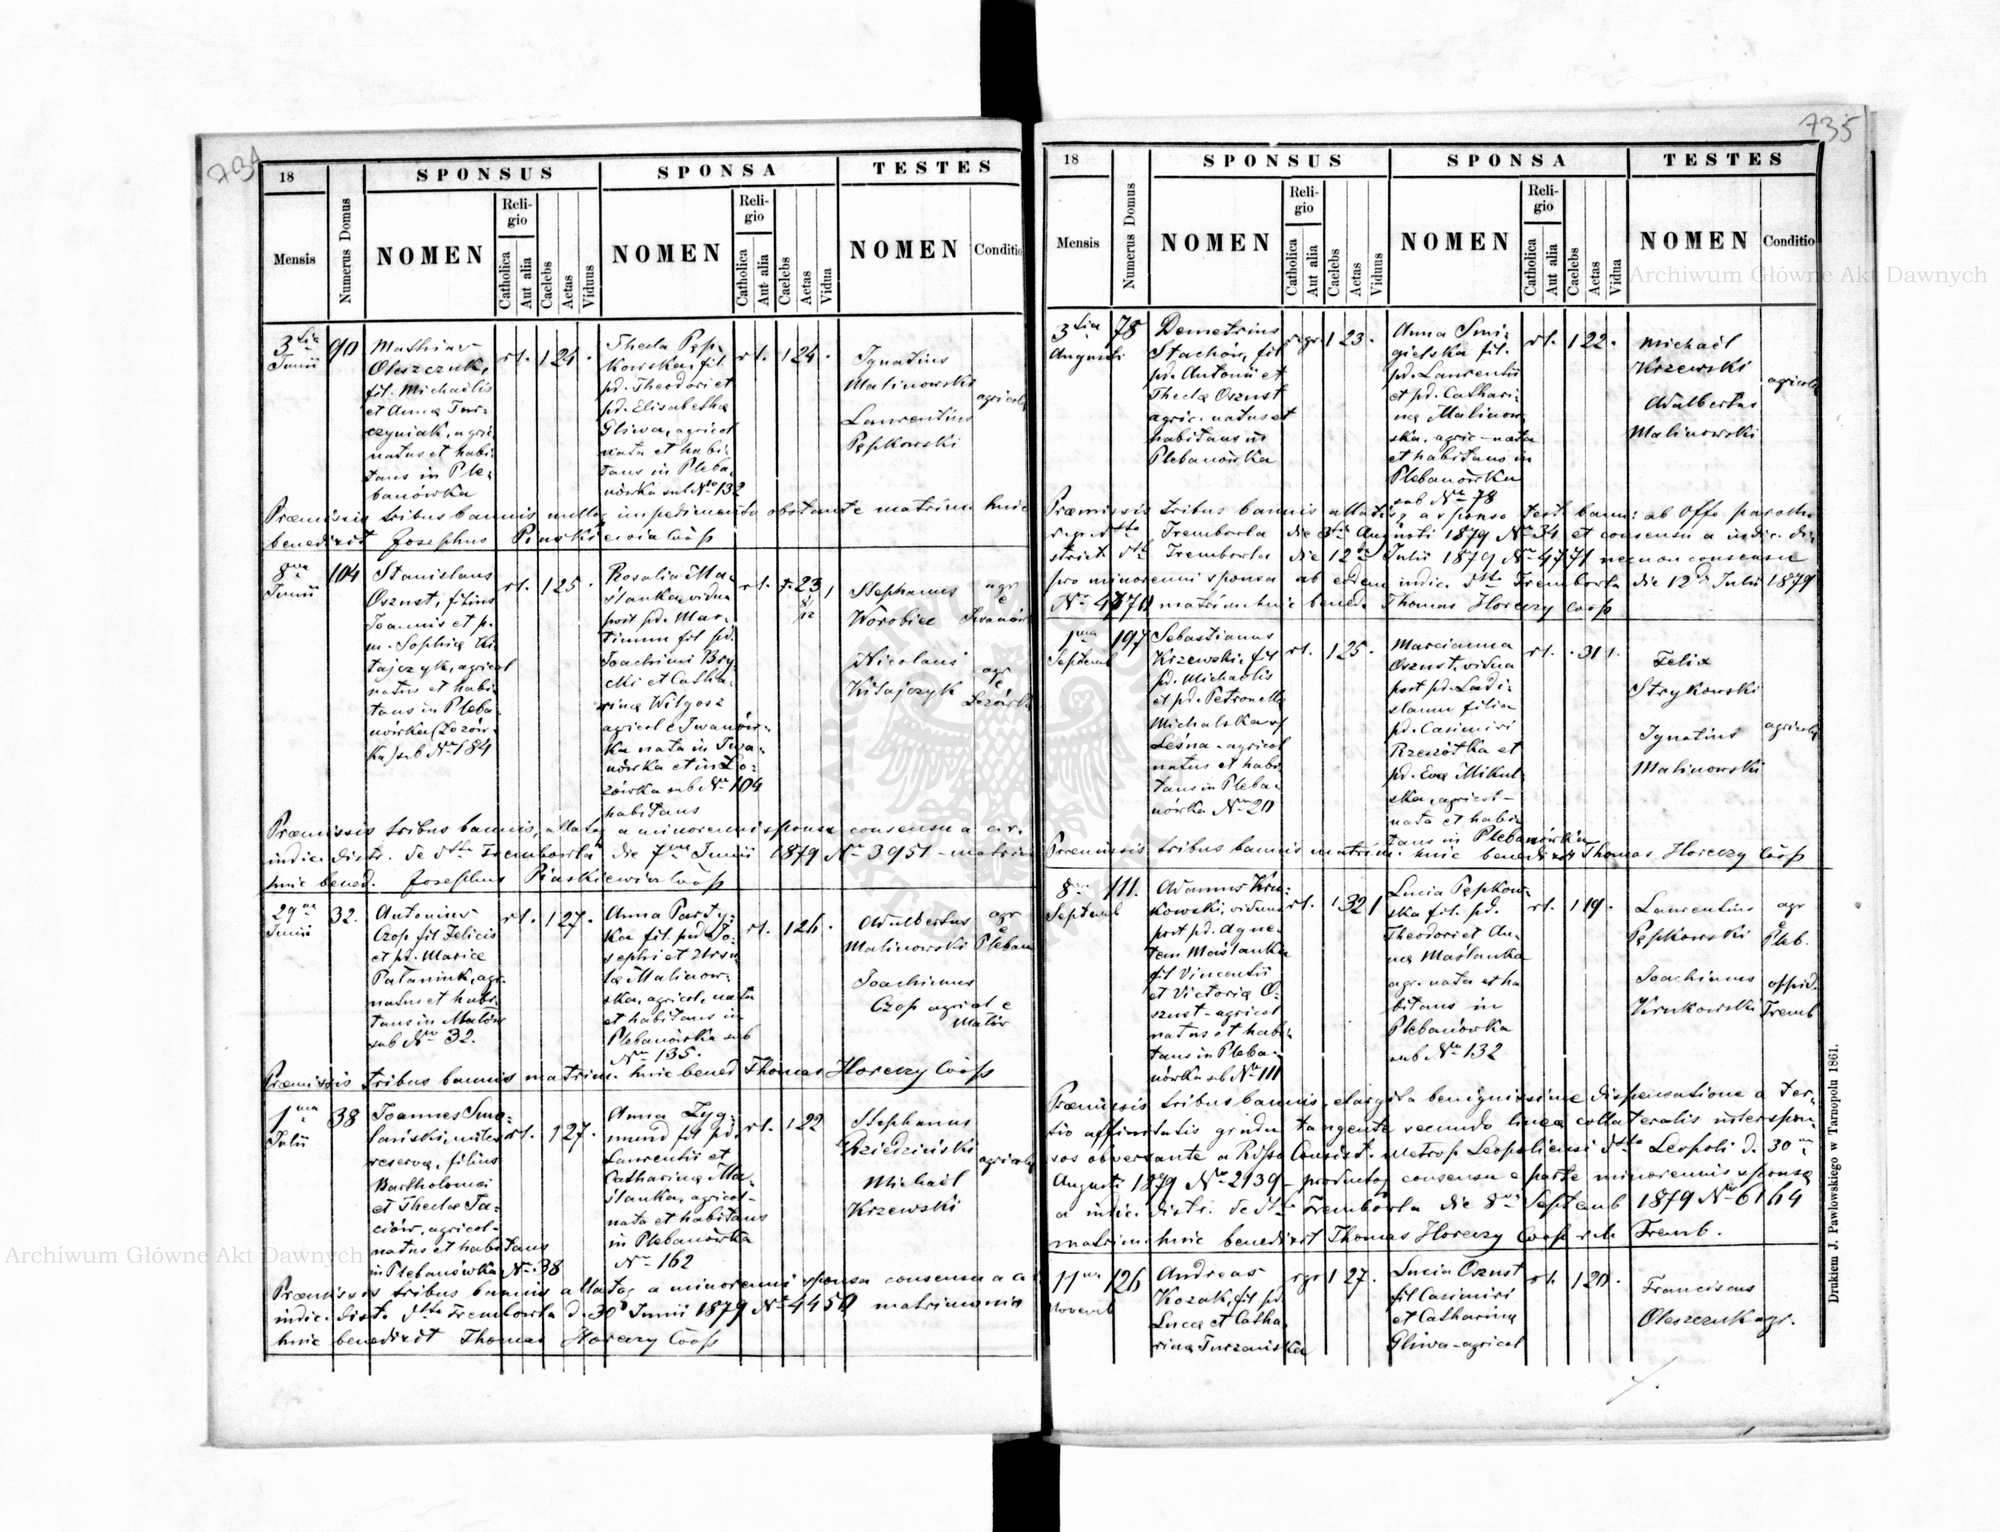 734
18
SPONSUS
SPONSA
TESTES
Mensis
Numerus Domus
NOMEN
Religio
Catholica
Aut alia
Caelebs
Aetas
Viduus
NOMEN
Religio
Catholica
Aut alia
Caelebs
Aetas
Vidua
NOMEN
Conditio
3tia
Junii
90
Mathias
Oleszczuk,
fil. Michaelis
et Anna Tur-
czyniak, agri.
natus et habi-
tans in Ple-
banówka
rl. 1 24 .
Thecla Pęp-
kowska, fil
pd. Theodori et
pd. Elisabetha
Gliwa, agricol
nata et habi-
tans in Pleba-
nówka sub Nro 132
rl. 1 24 .
Ignatius
Malinowski
Laurentius
Pępkowski
agricolę
Præmissis tribus bannis nullo impedimento obstante matrim huic
benedixit Josephus Piaskiewicz Coop
8va
Junii
104
Stanislaus
Oszust, filius
Joannis et p.
m. Sophia Ki
tajczyk, agricol
natus et habi-
tans in Pleba-
nówka (Łozów-
ka) sub Nro 184
rl. 1 25 .
Rosalia Ma-
ślanka vidua
post pd. Mar-
tinum fil pd.
Joachimi Bry
cki et Catha-
rina Witgosz
agricol e Iwanów-
ka nata in Iwa-
nówka et in Ło-
zówka sub Nro 104
habitans
rl. 23 1
Stephanus
Worobiec
agr
e
Iwanów
Nicolaus
Kitajczyk
agr
e
Łozówka
Præmissis tribus bannis, allato a minorenni sponsa consensu a c.r.
indic. distr. de dtto Trembowla die 7ma Junii 1879 Nro 3951 - matrim
huic bened. Josephus Piaskiewicz Coop
29na
Junii
32.
Antonius
Czop fil Felicis
et pd. Maria
Palaniuk, agr.
natus et habi-
tans in Małów
sub Nro 32.
rl. 1 27 .
Anna Party-
ka fil. pd. Jo-
sephi et Ursu
la Malinow-
ska, agricol, nata
et habitans in
Plebanówka sub
Nro 135.
rl. 1 26 .
Adalbertus
Malinowski
agr
e
Pleban
Joachimus
Czop agricol e
Małów
Præmissis tribus bannis matrim. huic bened Thomas Horczy Coop
1ma
Julii
38
Joannes Smo-
lański, miles
reserva, filius
Bartholomæi
et Thecla Ja-
ciów, agricol-
natus et habitans
in Plebanówka Nro 38
rl. 1 27 .
Anna Zyg-
mund fil pd.
Laurentii et
Catharina Ma-
ślanka, agricol-
nata et habitans
in Plebanówka
Nro 162
rl. 1 22
Stephanus
Dziedziński
Michaël
Krzewski
agricolę
Præmissis tribus bannis allato a minorenni sponsa consensu a c.r.
indic. distr. dtto Trembowla d. 30 Junii 1879 Nro 4450 matrimonio
huic benedixit Thomas Horczy Coop
735
18
SPONSUS
SPONSA
TESTES
Mensis
Numerus Domus
NOMEN
Religio
Catholica
Aut alia
Caelebs
Aetas
Viduus
NOMEN
Religio
Catholica
Aut alia
Caelebs
Aetas
Vidua
NOMEN
Conditio
3tia
Augusti
78
Demetrius
Stachów, fil
pd. Antonii et
Thecla Oszust
agric. natus et
habitans in
Plebanówka
r.gr 1 23 .
Anna Śmi-
gielska fil.
pd. Laurentii
et pd. Cathari-
na Malinow
ska, agric - nata
et habitans in
Plebanówka
sub Nro 78
rl. 1 22 .
Michaël
Krzewski
Adalbertus
Malinowski
agricolę
Præmissis tribus bannis allatis a sponso test. bann: ab Offo paroch
r.gr. dtto Trembowla die 3tia Augusti 1879 Nro 34 et consensu a indic. di-
strict. dtto Trembowla die 12 Julii 1879 Nro 4771 necnon consensu
pro minorenni sponsa ab eodem indic. dtto Trembowla die 12 Julii 1879
Nro 4770 matrim huic bened. Thomas Horczy Coop
1ma
Septemb
197
Sebastianus
Krzewski, fil
pd. Michaelis
et pd. Petronella
Michalska v/
Leśna - agricol
natus et habi
tans in Pleba-
nówka Nro 20
rl. 1 25 .
Marcianna
Oszust, vidua
post pd. Ladi-
slaum filia
pd. Casimiri
Rzeszótka et
pd. Eva Mikul
ska, agricol -
nata et habi-
tans in Plebanówka
rl. . 31 1.
Felix
Strykowski
Ignatius
Malinowski
agricolę
Præmissis tribus bannis matrim. huic benedixit Thomas Horczy Coop
8va
Septemb
111.
Adamus Kru-
kowski, viduus
post pd. Agne-
tem Maślanka
fil Vincentii
et Victoria O-
szust - agricol
natus et habi-
tans in Pleba-
nówka sub Nro 111
rl. 32 1
Lucia Pępkow-
ska fil. pd.
Theodori et An-
na Maślanka
agr. nata et ha
bitans in
Plebanówka
sub Nro 132
rl. 1 19 .
Laurentius
Pępkowski
agr
e
Pleb.
Joachimus
Krukowski
oppid.
Tremb
Præmissis tribus bannis, elargita benignissime dispensatione a ter-
tio affinitatis gradu tangente secundo linea collateralis inter spon-
sos obversante a Rssmo Consist. Metrop Leopoliensi dtto Leopoli d. 30
Augusti 1879 Nro 2939 - producto consensu e parte minorennis sponsa
a indic. distr. de dtto Trembowla die 8va Septemb 1879 Nro 6164
matrim. huic benedixit Thomas Horczy Coop r.l. Tremb.
11ma
Novemb
126
Andreas
Kozak, fil pd.
Luca et Catha-
rina Turzańska
r.gr 1 27 .
Lucia Oszust
fil Casimiri
et Catharina
Gliwa - agricol
rl. 1 20 .
Franciscus
Oleszczuk agr.
Drukiem J. Pawłowskiego w Tarnopolu 1861.
Archiwum Główne Akt Dawnych
Archiwum Główne Akt Dawnych